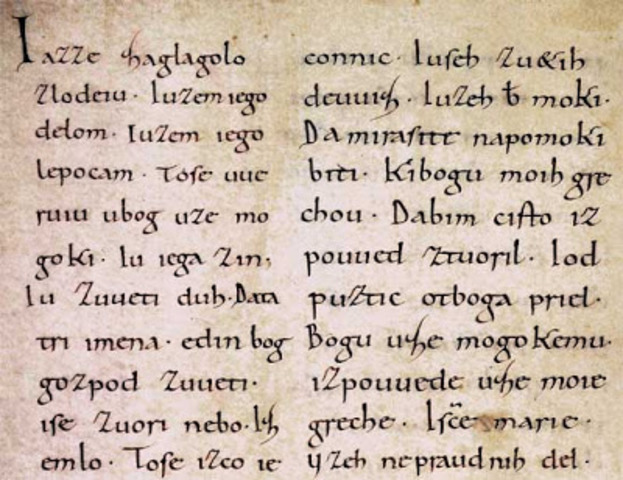 Iazze ſhaglagolo
zlodeiu · Iuzem iego
delom · Iuzem iego
lepocam · Tose uue
ruiu ubog uze mo
goki · Iu iega zin;
Iu zuueti duh · Data
tri imena · edin bog
gozpod zuueti ·
ise zuori nebo · Iſh
emlo · Tose izco ie
connic · Iuseh zu&ih
deuuiſh · Iuzeh b̄ moki ·
Da mirasite napomoki
biti · Kibogu moih gre
chou · Dabim cisto iz
pouued ztuoril · Iod
puztic otboga priel ·
Bogu uſhe mogokemu ·
izpouuede uſhe moie
greche · Isc̄e marie ·
yzeh nepraudnih del ·